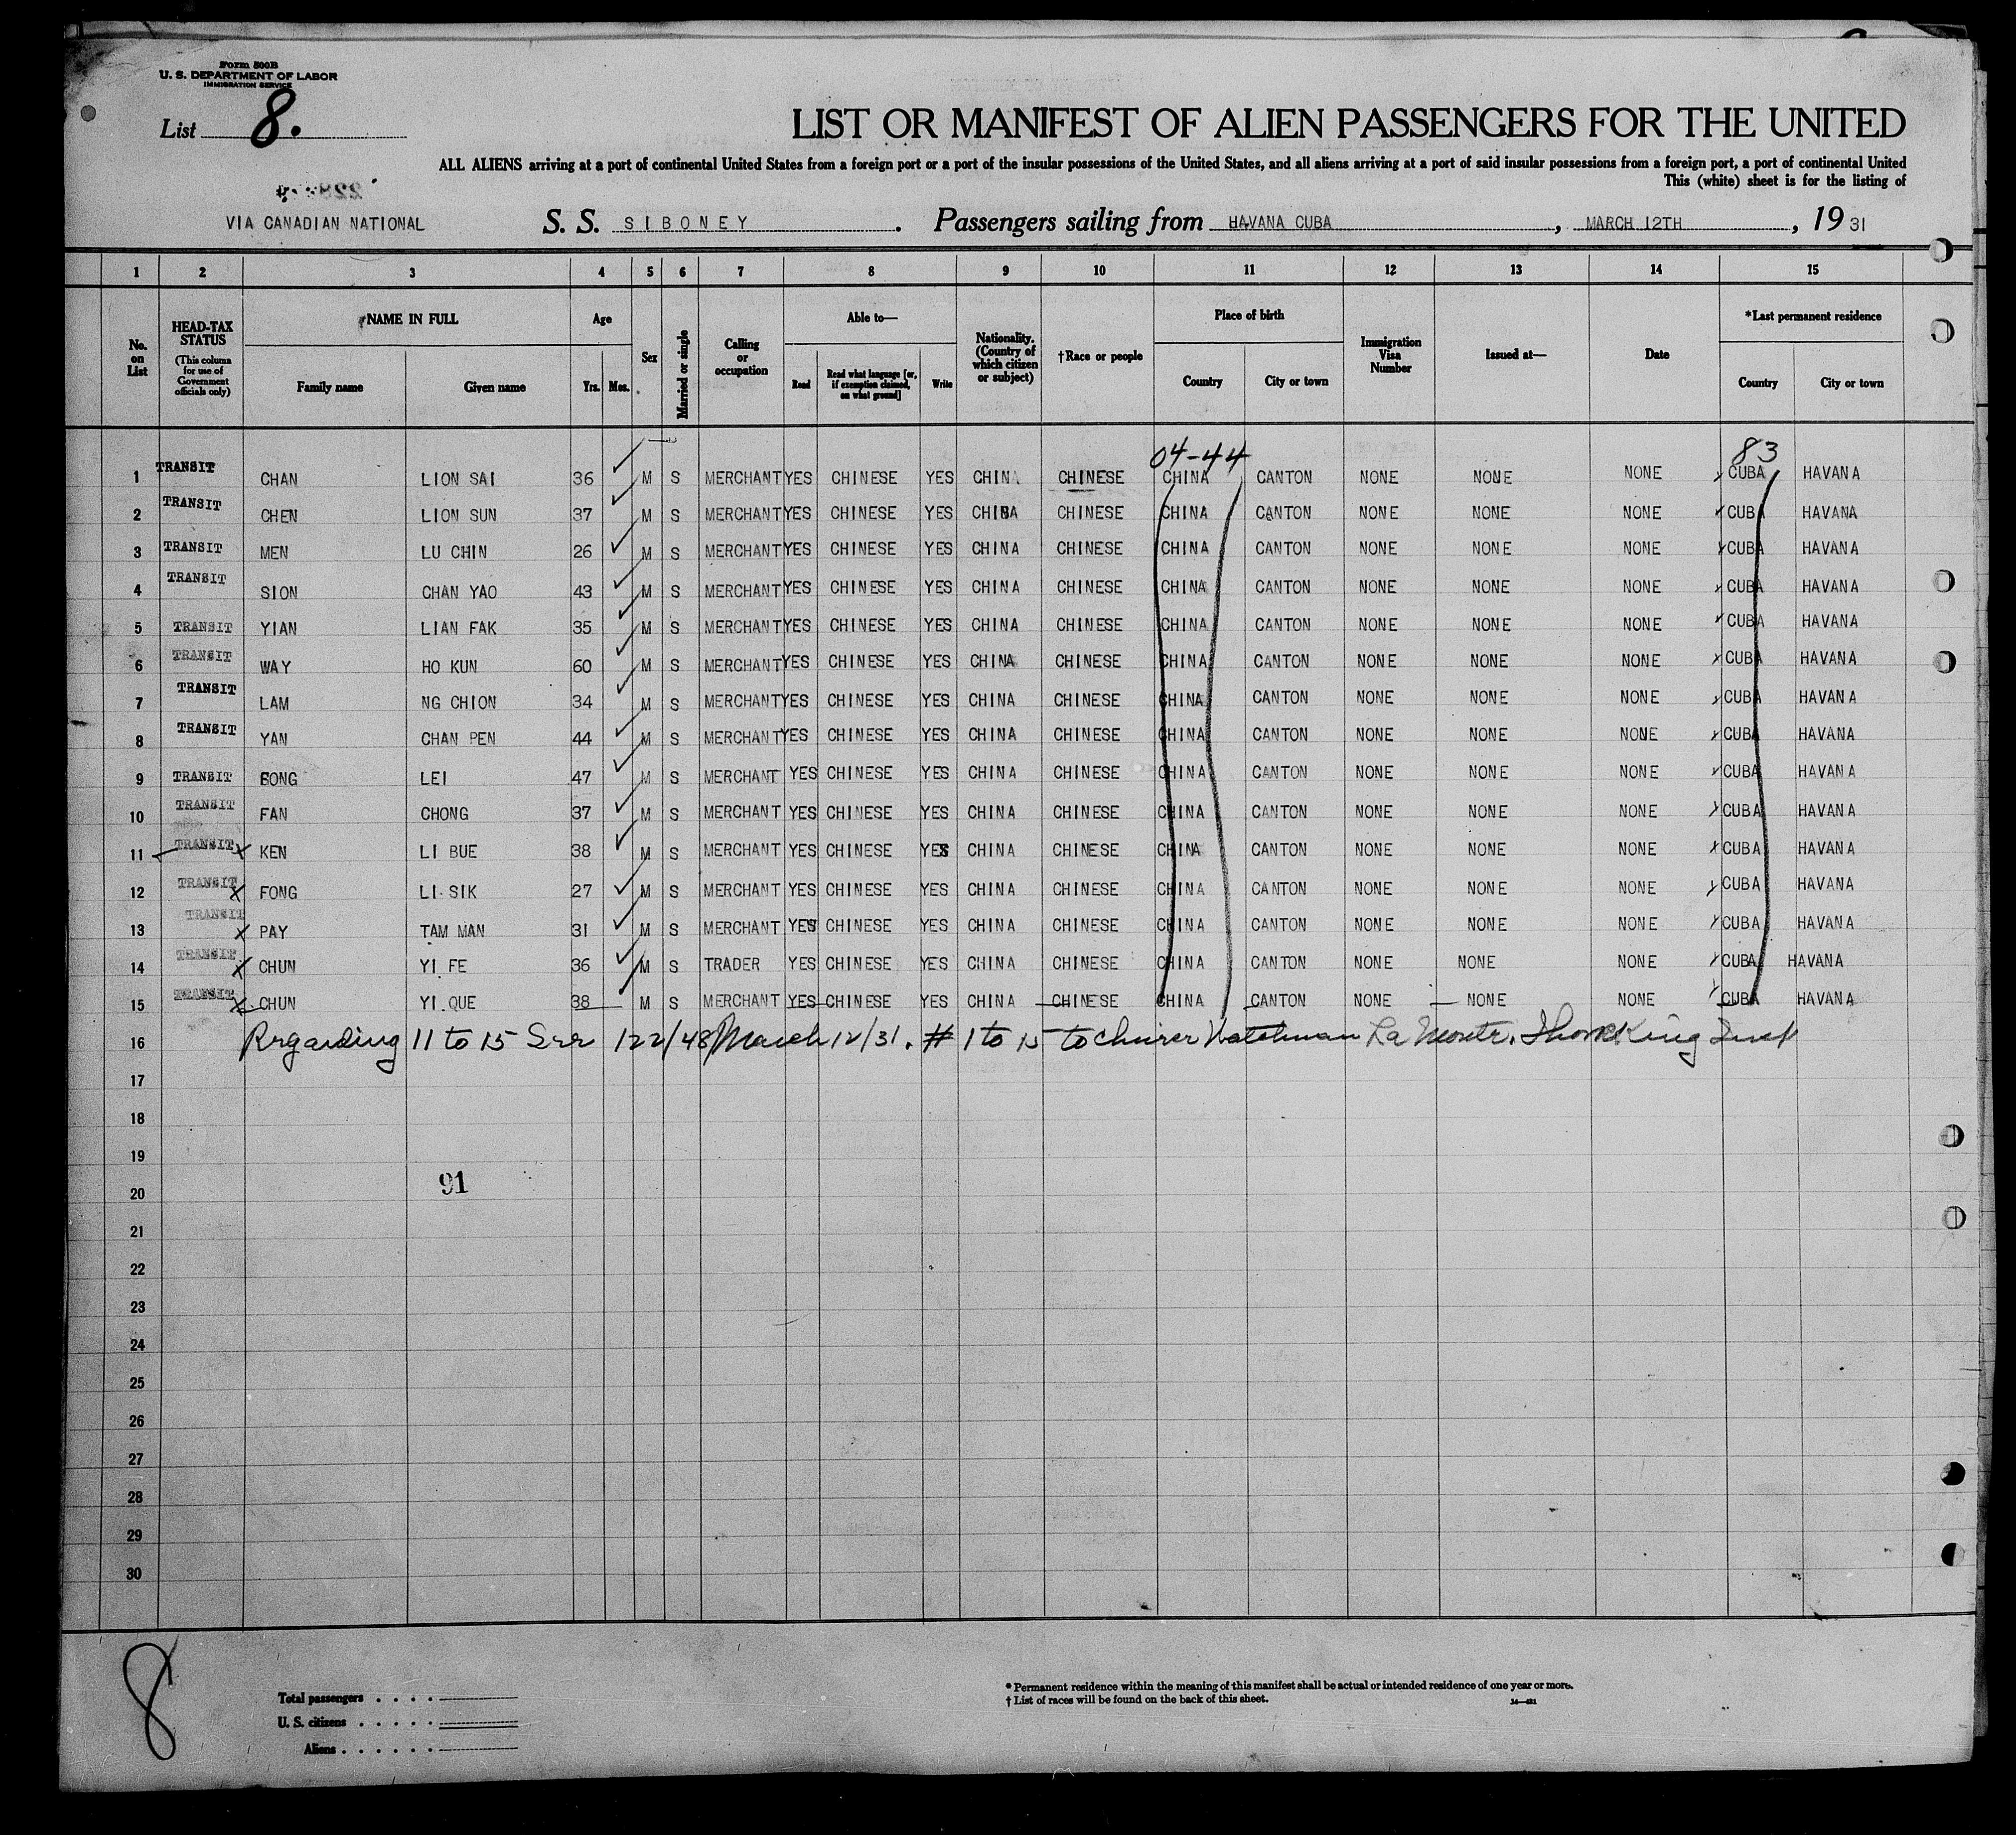 Form 500B
U. S. DEPARTMENT OF LABOR
IMMIGRATION SERVICE
List 8.
LIST OR MANIFEST OF ALIEN PASSENGERS FOR THE UNITED
ALL ALIENS arriving at a port of continental United States from a foreign port or a port of the insular possessions of the United States, and all aliens arriving at a port of said insular possessions from a foreign port, a port of continental United
This (white) sheet is for the listing of
VIA CANADIAN NATIONAL S. S. SIBONEY. Passengers sailing from HAVANA CUBA, MARCH 12TH, 19 31
1 2 3 4 5 6 7 8 9 10 11 12 13 14 15
No. on List
HEAD-TAX STATUS (This column for use of Government officials only)
NAME IN FULL Family name Given name
Age Yrs. Mos.
Sex
Married or single
Calling or occupation
Able to— Read Read what language [or, if exemption claimed, on what ground] Write
Nationality. (Country of which citizen or subject)
†Race or people
Place of birth Country City or town
Immigration Visa Number
Issued at—
Date
*Last permanent residence Country City or town
04-44 83
1 TRANSIT CHAN LION SAI 36 M S MERCHANT YES CHINESE YES CHINA CHINESE CHINA CANTON NONE NONE NONE CUBA HAVANA
2 TRANSIT CHEN LION SUN 37 M S MERCHANT YES CHINESE YES CHINA CHINESE CHINA CANTON NONE NONE NONE CUBA HAVANA
3 TRANSIT MEN LU CHIN 26 M S MERCHANT YES CHINESE YES CHINA CHINESE CHINA CANTON NONE NONE NONE CUBA HAVANA
4 TRANSIT SION CHAN YAO 43 M S MERCHANT YES CHINESE YES CHINA CHINESE CHINA CANTON NONE NONE NONE CUBA HAVANA
5 TRANSIT YIAN LIAN FAK 35 M S MERCHANT YES CHINESE YES CHINA CHINESE CHINA CANTON NONE NONE NONE CUBA HAVANA
6 TRANSIT WAY HO KUN 60 M S MERCHANT YES CHINESE YES CHINA CHINESE CHINA CANTON NONE NONE NONE CUBA HAVANA
7 TRANSIT LAM NG CHION 34 M S MERCHANT YES CHINESE YES CHINA CHINESE CHINA CANTON NONE NONE NONE CUBA HAVANA
8 TRANSIT YAN CHAN PEN 44 M S MERCHANT YES CHINESE YES CHINA CHINESE CHINA CANTON NONE NONE NONE CUBA HAVANA
9 TRANSIT FONG LEI 47 M S MERCHANT YES CHINESE YES CHINA CHINESE CHINA CANTON NONE NONE NONE CUBA HAVANA
10 TRANSIT FAN CHONG 37 M S MERCHANT YES CHINESE YES CHINA CHINESE CHINA CANTON NONE NONE NONE CUBA HAVANA
11 TRANSIT X KEN LI BUE 38 M S MERCHANT YES CHINESE YES CHINA CHINESE CHINA CANTON NONE NONE NONE CUBA HAVANA
12 TRANSIT X FONG LI SIK 27 M S MERCHANT YES CHINESE YES CHINA CHINESE CHINA CANTON NONE NONE NONE CUBA HAVANA
13 TRANSIT X PAY TAM MAN 31 M S MERCHANT YES CHINESE YES CHINA CHINESE CHINA CANTON NONE NONE NONE CUBA HAVANA
14 TRANSIT X CHUN YI FE 36 M S TRADER YES CHINESE YES CHINA CHINESE CHINA CANTON NONE NONE NONE CUBA HAVANA
15 TRANSIT X CHUN YI QUE 38 M S MERCHANT YES CHINESE YES CHINA CHINESE CHINA CANTON NONE NONE NONE CUBA HAVANA
16 Regarding 11 to 15 122/48 March 12/31. # 1 to 15 to Watchman
17
18
19
20 91
21
22
23
24
25
26
27
28
29
30
8
Total passengers
U. S. citizens
Aliens
* Permanent residence within the meaning of this manifest shall be actual or intended residence of one year or more.
† List of races will be found on the back of this sheet.